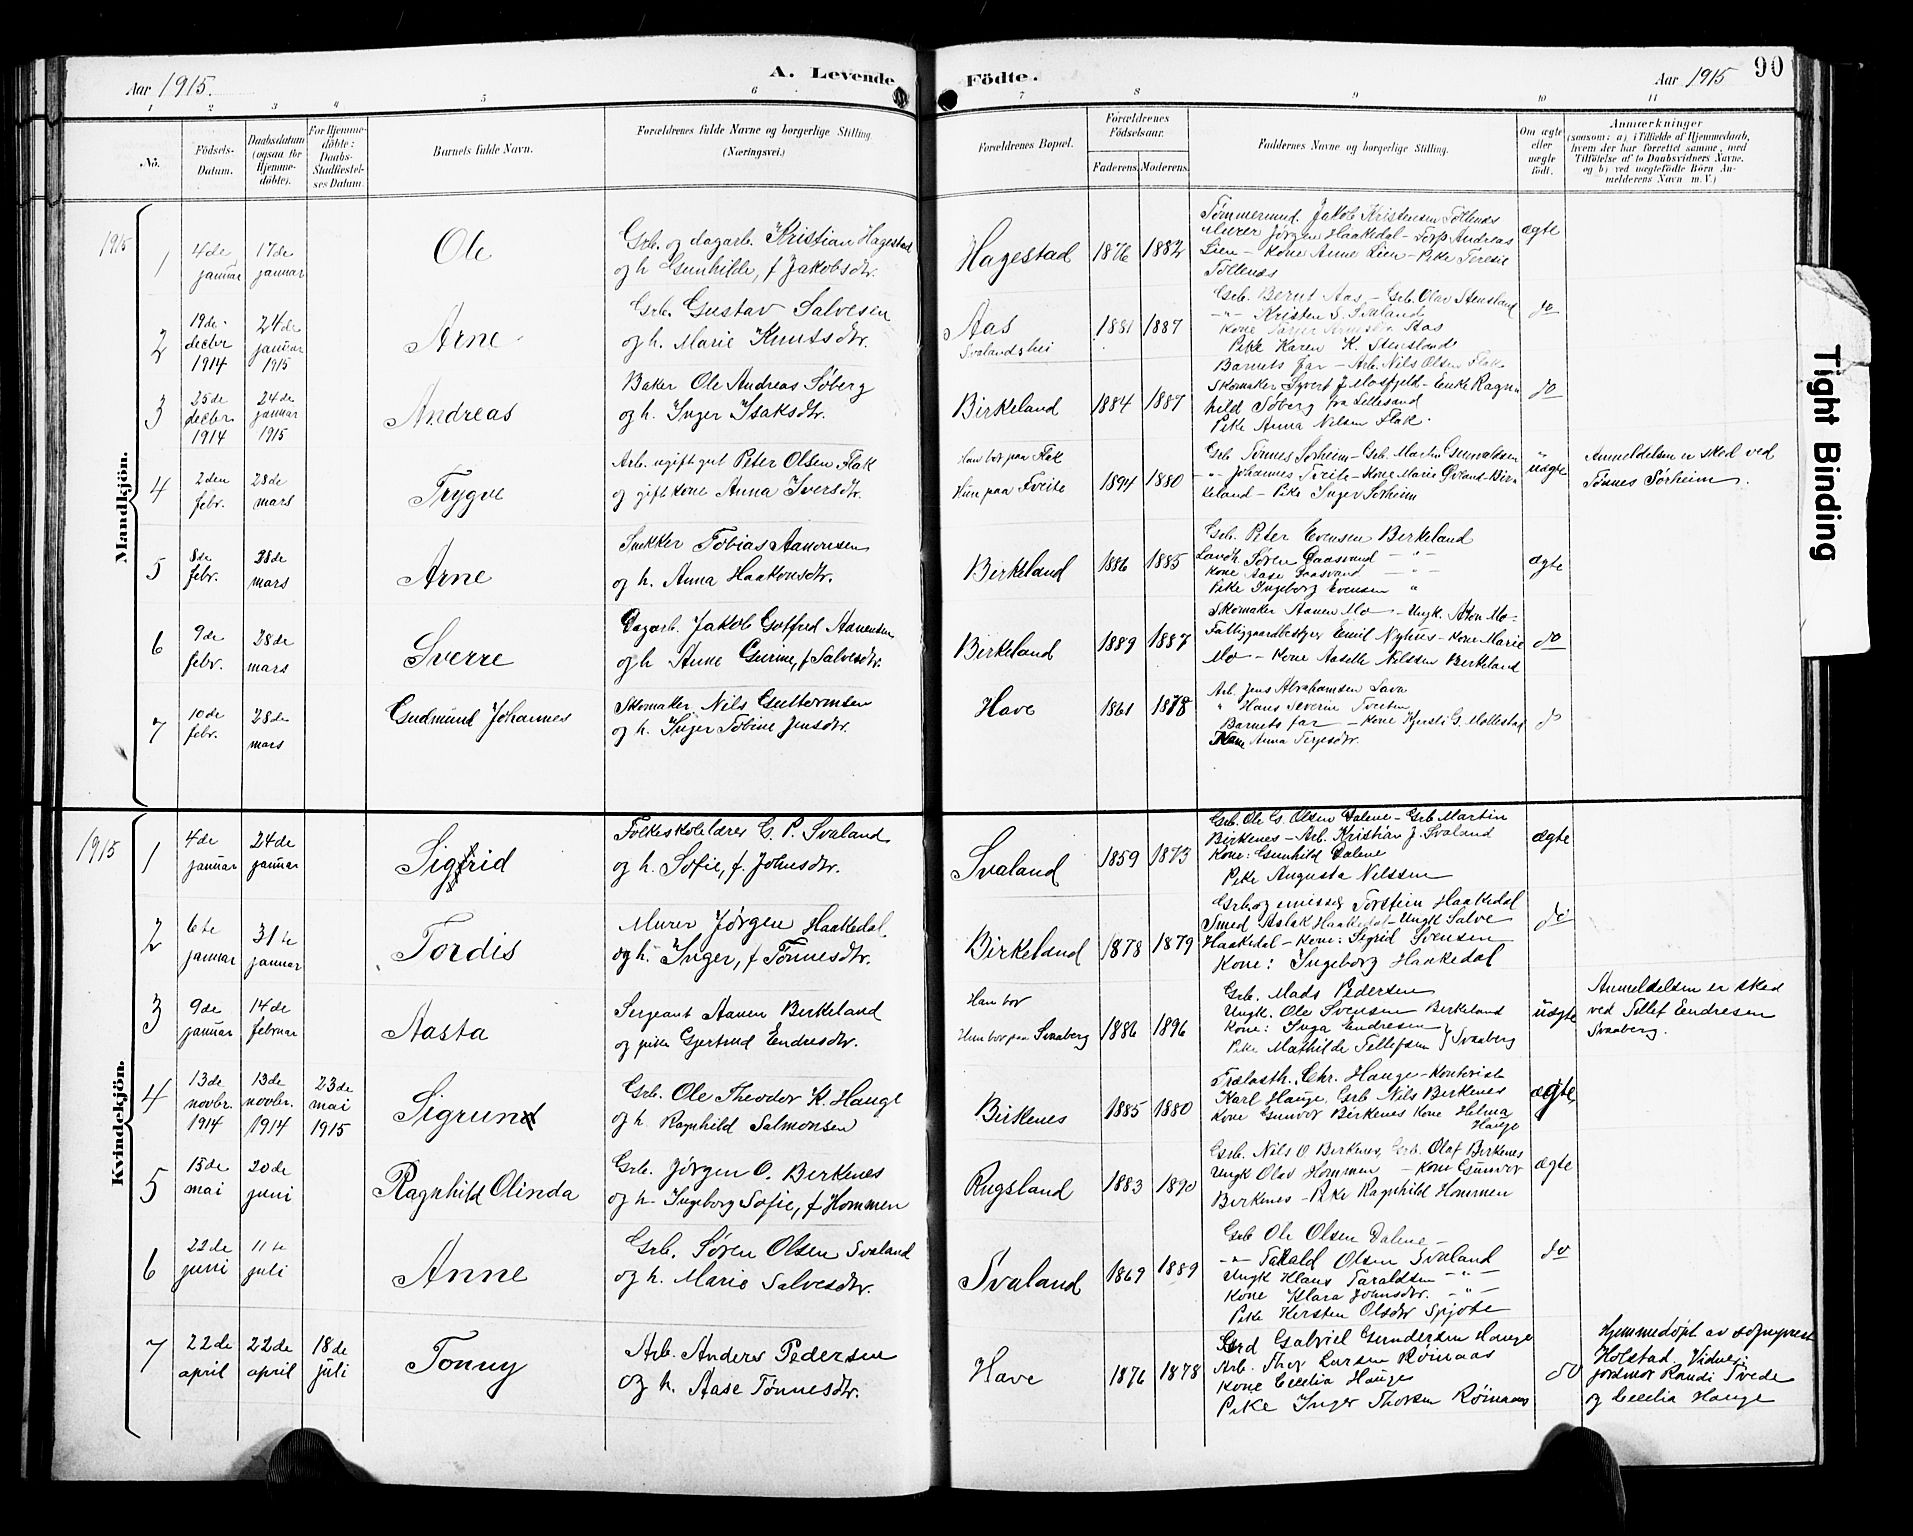 Aar 1915.
A. Levende Födte.
Aar 1915
90
1 2 3 4 5 6 7 8 9 10 11
No.
Födsels-
Datum.
Daabsdatum
(ogsaa for
Hjemme-
döbte).
For Hjemme-
döbte:
Daabs-
Stadfæstel-
ses Datum.
Barnets fulde Navn.
Forældrenes fulde Navne og borgerlige Stilling
(Næringsvei.)
Forældrenes Bopæl.
Forældrenes
Födselsaar.
Faderens. Moderens.
Faddernes Navne og borgerlige Stilling.
Om ægte
eller
uægte
født.
Anmærkninger
(saasom: a) i Tilfælde af Hjemmedaab,
hvem der har forrettet samme, med
Tilføielse af to Daabsvidners Navne.
og b) ved uægtefödte Börn An-
melderens Navn m. V.)
Mandkjön.
1915
1
4de
januar
17de
januar
Ole
Grb. og dagarb. Kristian Hagestad
og h. Gunhilde, f. Jakobsdtr.
Hagestad
1876 1882
Tømmermd. Jakob Kristensen Tollenes
Murer Jørgen Haakedal - Torp Andreas
Lien - Kone Anne Lien - Pike Teresie
Tollenes
ægte
2
19de
decbr
1914
24de
januar
1915
Arne
Grb. Gustav Salvesen
og h. Marie Knutsdtr.
Aas
Svalandshei
1881 1887
Grb. Bernt Aas - Grb. Olav Stensland
-"- Kristen S.
Kone Aas
Pike Karen K. Stensland
do
3
25de
decbr
1914
24de
januar
1915
Andreas
Baker Ole Andreas Søberg
og h. Inger Isaksdtr.
Birkeland
1884 1887
Barnets far - Arb. Nils Olsen Flak
Skomaker Syvert J. Mosfjeld - Enke Ragn-
hild Søberg fra Lillesand
Pike Anna Nilsen Flak.
do
4
2den
febr.
28de
mars
Trygve
Arb. ugift gut Peter Olsen Flak
og gift kone Anna Iversdtr.
Han bor paa Flak
Hun paa Tveite
1894 1880
Grb Tønnes Sørheim - Grb. Martin Gunvaldsen
-"- Johannes Tveite - Kone Marie Øvland - Birk
keland - Pike Inger Sørheim
uægte
Anmeldelsen er sked ved
Tønnes Sørheim.
5
8de
febr.
28de
mars
Arne
Snekker Tobias Aanensen
og h. Anna Haakonsdtr.
Birkeland
1886 1885
Grb. Peter Evensen Birkeland
Landh. Søren Gaasvand -"-
Kone Aase Gaasvand -"-
Pike Ingeborg Evensen "
ægte
6
9de
febr.
28de
mars
Sverre
Dagarb. Jakob Gotfred Aanensen
og h Anne Gurine, f Salvesdtr.
Birkeland
1889 1887
Skomaker Aanen Mo - Ungk. Aton Mo -
Fattiggaardbestyrer Emil Nyhus - Kone Marie
Mo - Kone Aaselle Nilssen Birkeland
do
7
10de
febr.
28de
mars
Gudmund Johannes
Skomaker Nils Guttormsen
og h. Inger Tobine Jensdtr.
Have
1861 1878
Arb. Jens Abrahamsen Lava
" Hans Severin Tveiten
Barnets far - Kone Kjersti G. Mollestad
Kone Anna Terjesdtr.
do
Kvindekjön.
1915
1
4de
januar
24de
januar
Sigrid
Folkeskolelærer G. P. Svaland
og h. Sofie, f. Johnsdtr.
Svaland
1859 1873
Grb. Ole G. Olsen Dalene - Grb Martin
Birkenes - Arb. Kristian J. Svaland
Kone: Gunhild Dalene
Pike Augusta Nilssen
ægte
2
6te
januar
31te
januar
Tordis
Murer Jørgen Haakedal
og h. Inger, f Tønnesdtr.
Birkeland
1878 1879
Grb og emissær Torstein Haakedal
Smed Aslak Haakedal - Ungk Salve
Haakedal - Kone: Sigrid Svensen
Kone: Ingeborg Haakedal
do
3
9de
januar
14de
februar
Aasta
Sergeant Aanen Birkeland
og pike Gjertrud Endresdtr.
Han bor
Hun bor paa Svaaberg
1886 1896
Grb. Mads Pedersen
Ungk. Ole Svensen Birkeland
Kone: Inga Endresen
Pike Mathilde Tellefsen } Svaaberg
uægte
Anmeldelsen er sked
ved Tellef Endresen
Svaaberg.
4
13de
novbr.
1914
13de
novbr.
1914
23de
mai
1915
Sigrun
Grb. Ole Theodor K. Hauge
og h. Ragnhild Salmonsen
Birkenes
1885 1880
Trælasth. Chr. Hauge - Kontorist
Karl Hauge, Grb Nils Birkenes
Kone Gunvor Birkenes Kone Helma
Hauge
ægte
5
15de
mai
20de
juni
Ragnhild Olinda
Grb. Jørgen O. Birkenes
og h. Ingeborg Sofie, f Hommen
Rugsland
1883 1890
Grb. Nils O Birkenes, Grb. Olaf Birkenes
Ungk Olav Hommen - Kone Gunvor
Birkenes - Pike Ragnhild Hommen
ægte
6
22de
juni
11te
juli
Anne
Grb. Søren Olsen Svaland
og h. Marie Salvesdtr.
Svaland
1869 1889
Grb Ole Olsen Dalene -
-"- Tarald Olsen Svaland
Ungk Klaus Taraldsen -"-
Kone Klara Johnsdtr. -"-
Pike Kirsten Olsdtr Spjote
do
7
22de
april
22de
april
18de
juli
Tonny
Arb. Anders Pedersen
og h. Aase Tønnesdtr.
Have
1876 1878
Grd Gabriel Gundersen Hauge
Arb. Thor Larsen Røinaas
Kone Cecelia Hauge
Pike Inger Thorsen Røinaas
do
Hjemmedøpt av sogneprest
Holstad. Vidner:
Jordmor Randi Tvede
og Cecelia Hauge
Tight Binding